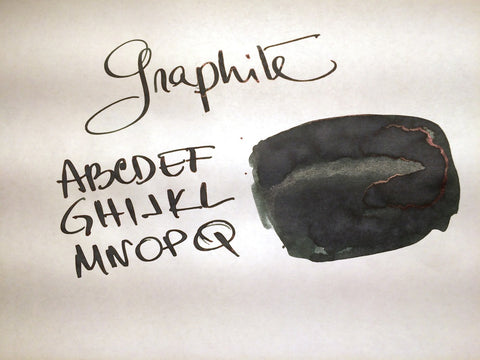 Graphite
ABCDEF
GHIJKL
MNOPQ